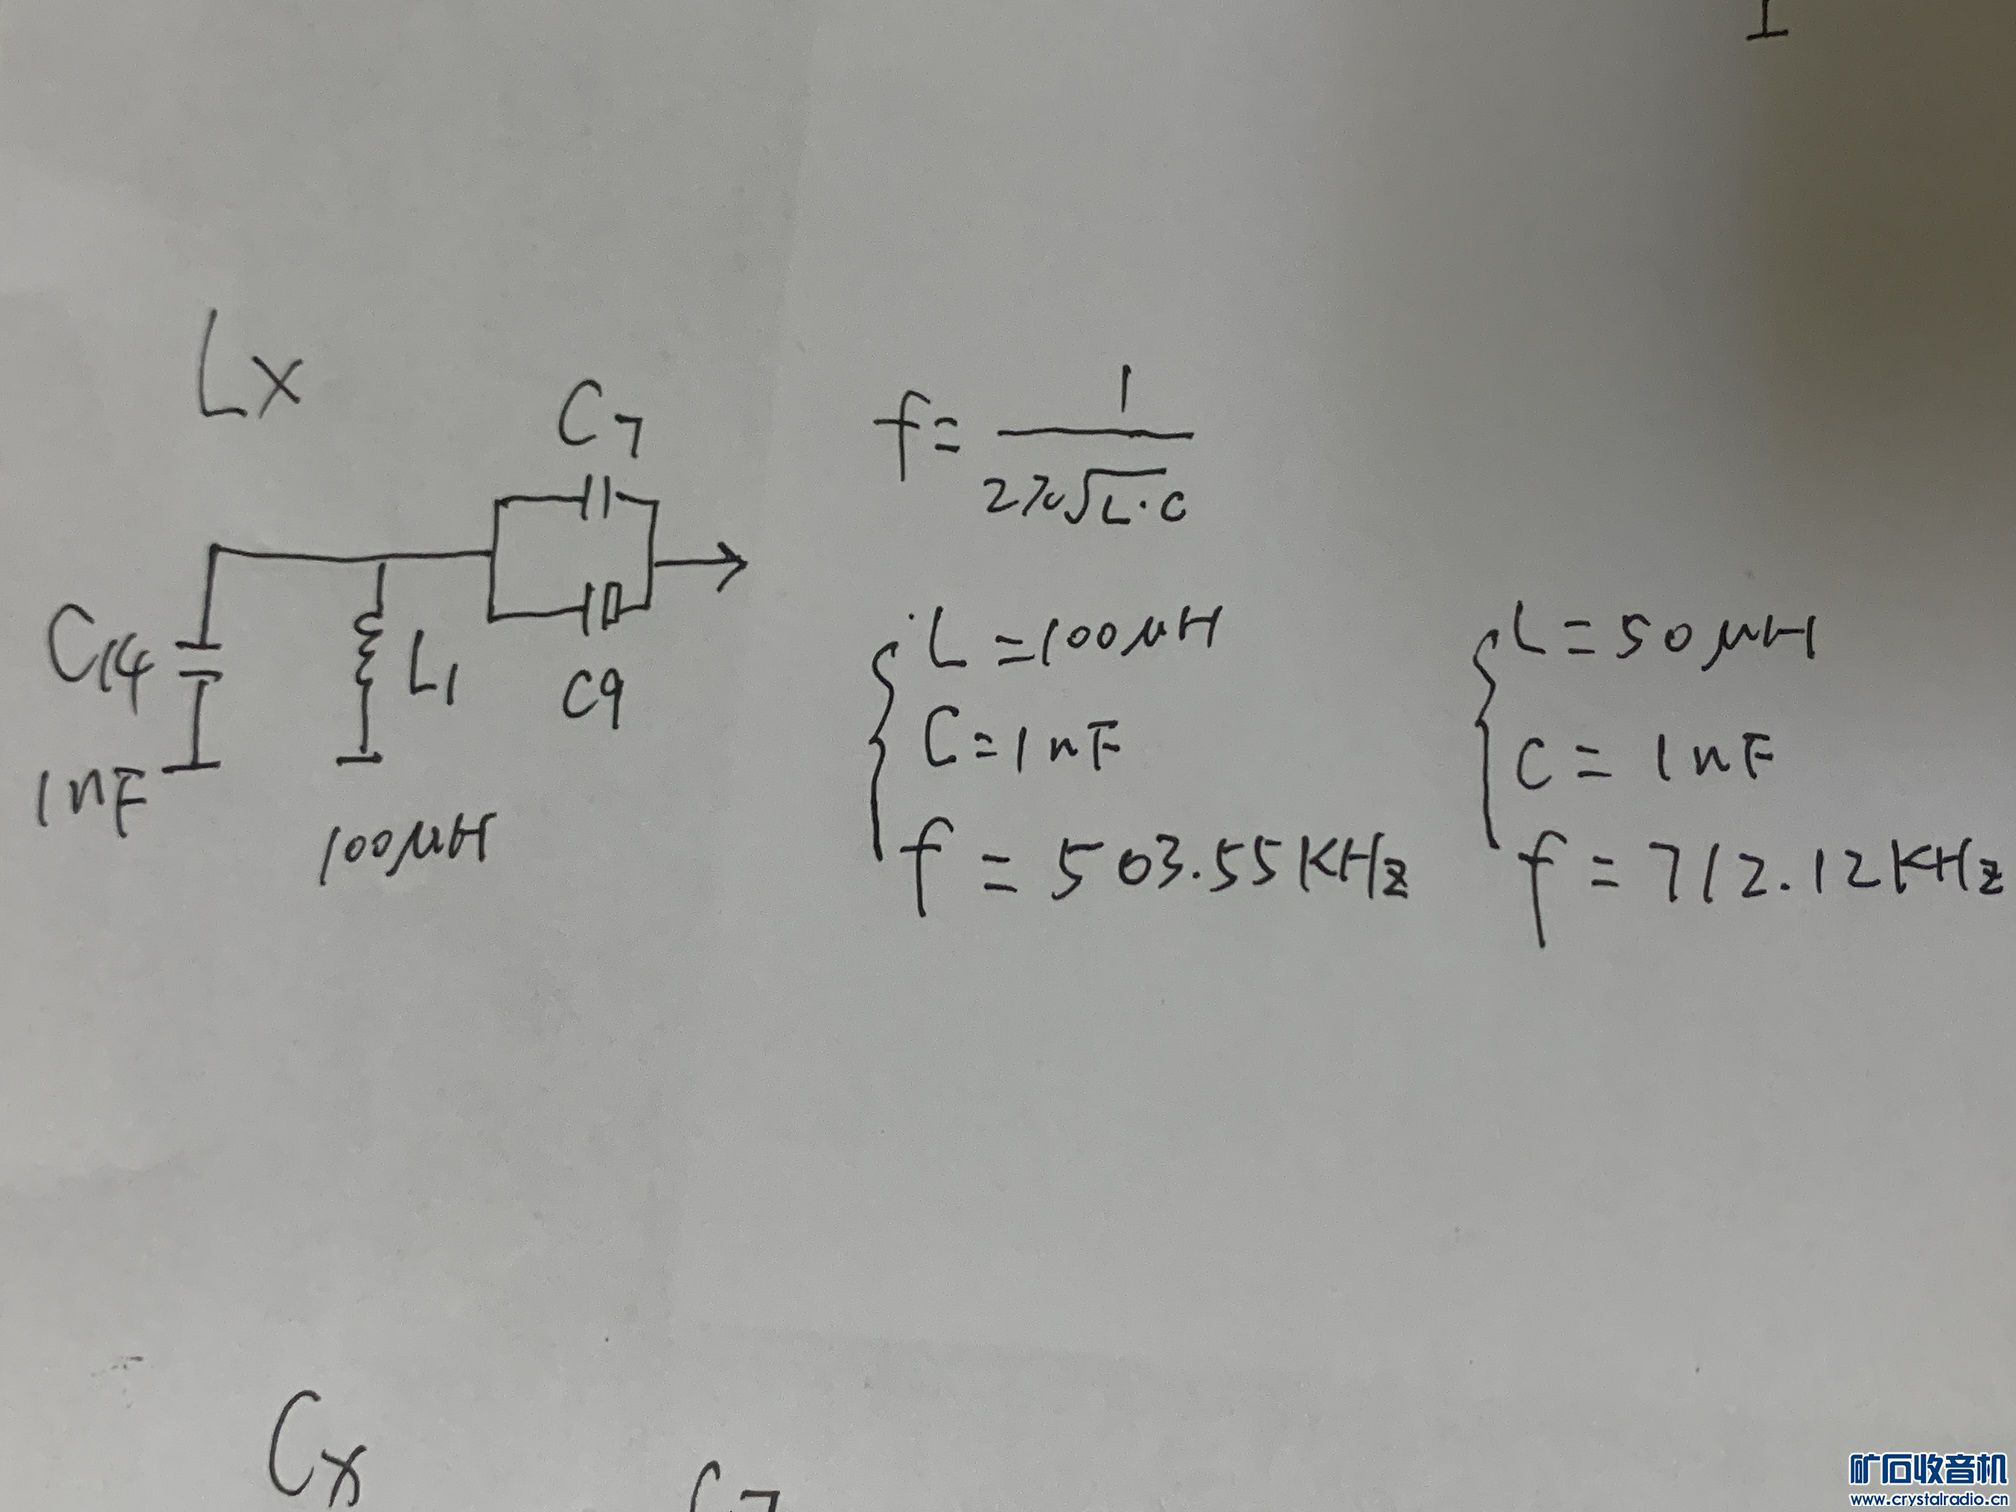 Lx
C7
C14
1nF
L1
100μH
C9
f = 1 / 2π√L·C
L = 100μH
C = 1nF
f = 503.55KHz
L = 50μH
C = 1nF
f = 712.12KHz
Cx
C7
矿石收音机
www.crystalradio.cn